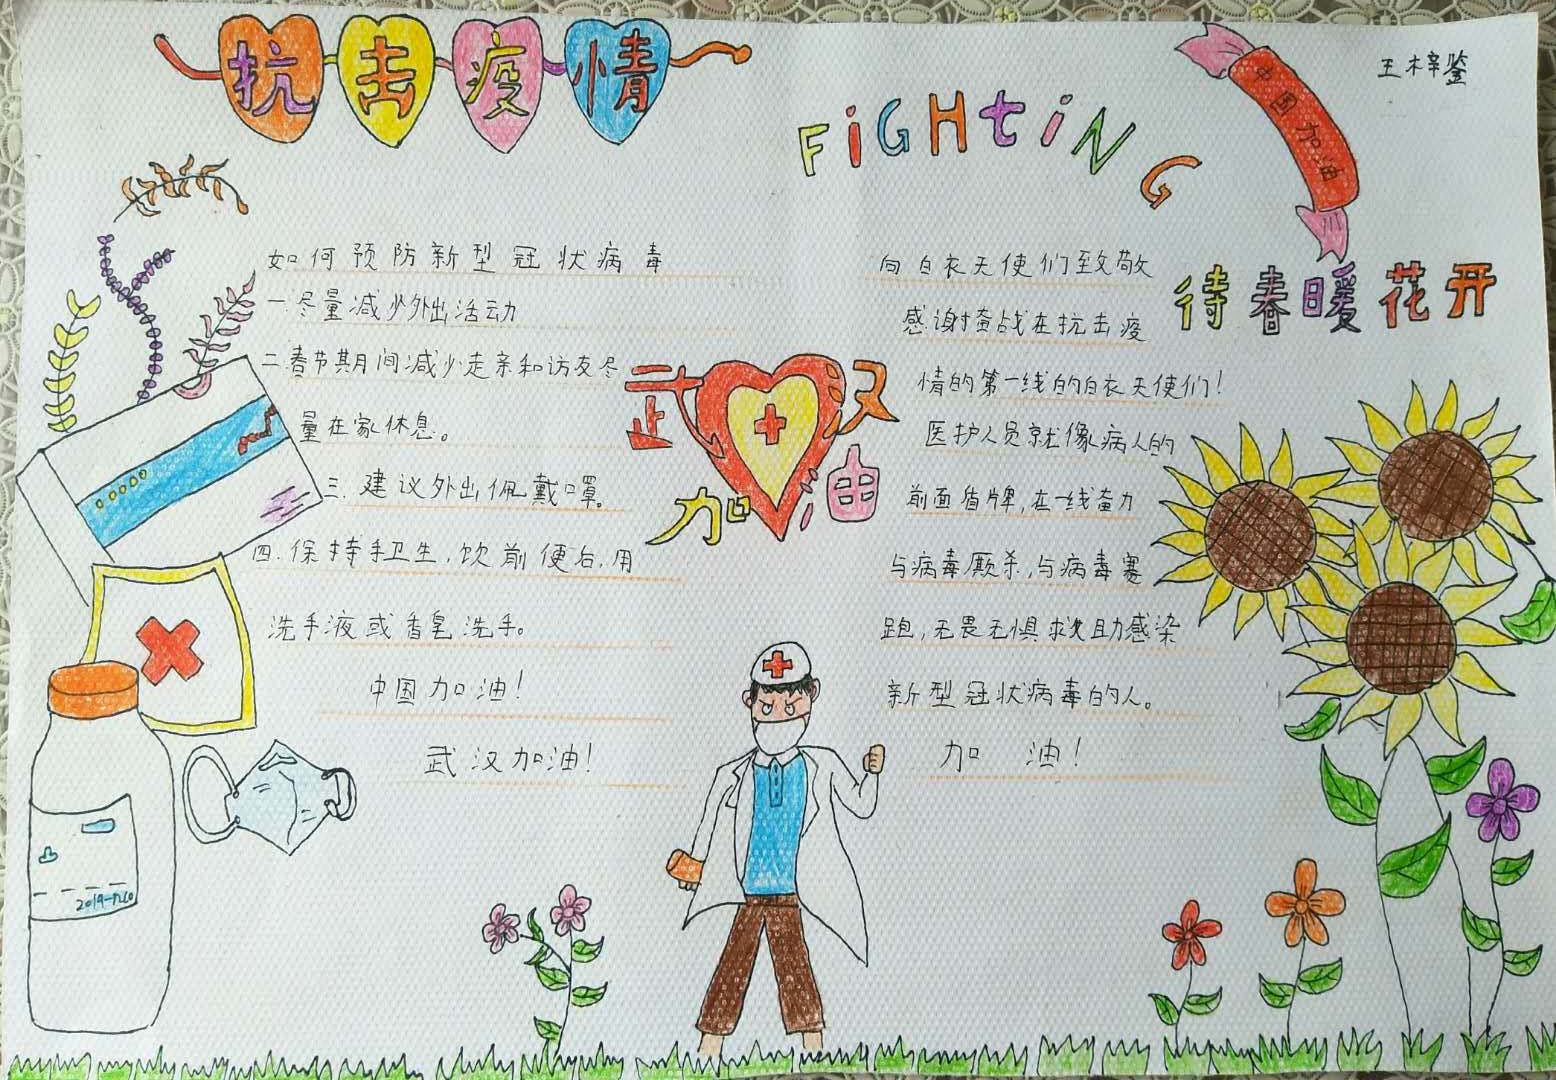 抗击疫情
FiGHtiNG
中国加油
王梓鉴
待春暖花开
如何预防新型冠状病毒
一.尽量减少外出活动
二.春节其月间减少走亲和访友尽
量在家休息。
三.建议外出佩戴口罩。
四.保持手卫生,饮前便后,用
洗手液或香皂洗手。
中国加油!
武汉加油!
武汉
加油
向白衣天使们致敬
感谢奋战在抗击疫
情的第一线的白衣天使们!
医护人员就像病人的
前面盾牌,在一线奋力
与病毒厮杀,与病毒赛
跑,无畏无惧救助感染
新型冠状病毒的人。
加油!